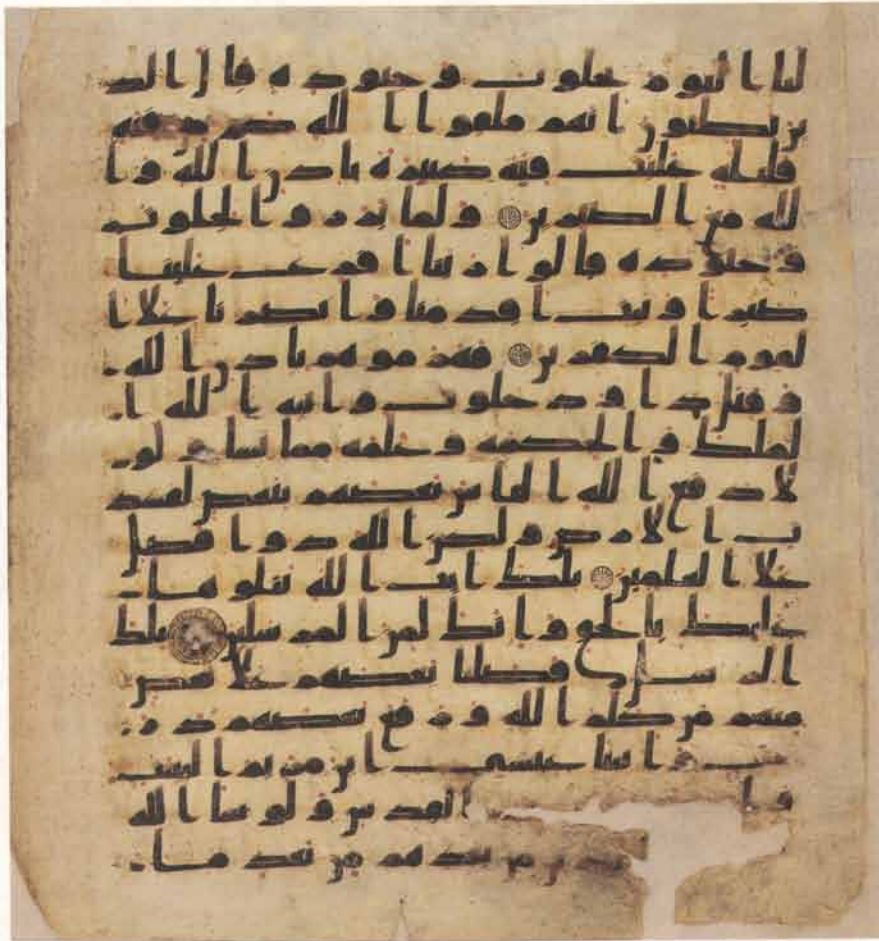 لنا اليوم بجلوت وجنوده قال الذ
ين يظنون انهم ملقوا الله كم من فئه
قليله غلبت فئه كثيره باذن الله وا
لله مع الصبرين ولما برزوا لجلوت
وجنوده قالوا ربنا افرغ علينا
صبرا وثبت اقدمنا وانصرنا علا ا
لقوم الكفرين فهزموهم باذن الله
وقتل داود جلوت واتيه الله ا
لملك والحكمه وعلمه مما يشا ولو
لا دفع الله الناس بعضهم ببعض لفسد
ت الارض ولكن الله ذوا فضل
علا العلمين تلك ايت الله نتلوها
عليك بالحق وانك لمن المرسلين تلك
الرسل فضلنا بعضهم علا بعض
منهم من كلم الله ورفع بعضهم درج
ت واتينا عيسى ابن مريم البينت
وا القدس ولو شا الله
من بعدهم من بعد ما